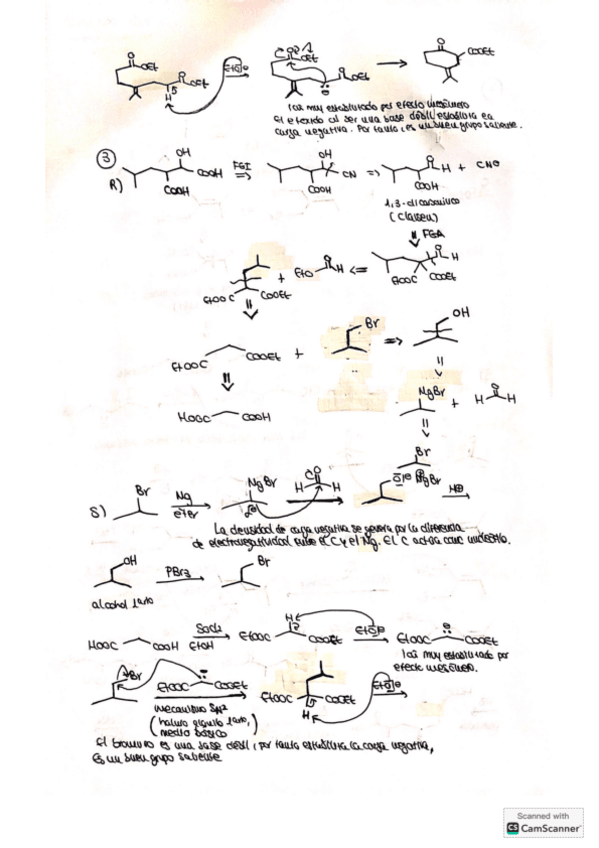 O
OEt
COOEt
OEt
EtO⊖
H
Ion muy estabilizado por efecto mesómero
El etóxido al ser una base débil estabiliza la
carga negativa. Por tanto, es un buen grupo saliente.
③
R)
OH
COOH
COOH
FGI
⇒
OH
CN
COOH
⇒
O
H
COOH
+ CN⊖
1,3-dicarbonílico
(Claisen)
FGA
EtOOC COOEt
+ EtO H
⇐
EtOOC COOEt
EtOOC COOEt + Br ⇒ OH
HOOC COOH
MgBr
+ H H
Br
S) Br
Mg
eter
MgBr
H H
O⊖ ⊕MgBr
H⊕
La densidad de carga negativa se genera por la diferencia
de electronegatividad entre el C y el Mg. El C actúa como nucleófilo.
OH
PBr3
Br
alcohol 1ario
HOOC COOH
SOCl2
EtOH
EtOOC COOEt
H
EtO⊖
EtOOC COOEt
Ion muy estabilizado por
efecto mesómero.
Br
EtOOC COOEt
EtOOC COOEt
H
EtO⊖
mecanismo SN2
medio básico
El bromuro es una base débil, por tanto estabiliza la carga negativa,
Es un buen grupo saliente
Scanned with
CS CamScanner